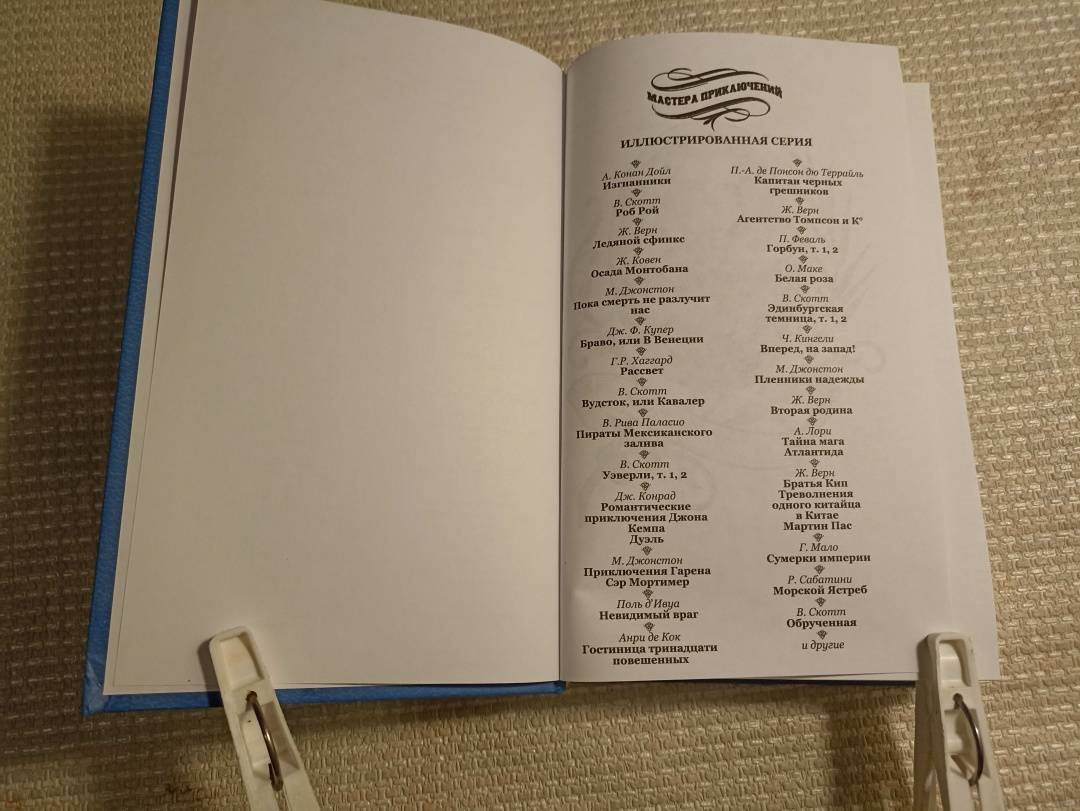 МАСТЕРА ПРИКЛЮЧЕНИЙ
ИЛЛЮСТРИРОВАННАЯ СЕРИЯ
А. Конан Дойл
Изгнанники
В. Скотт
Роб Рой
Ж. Верн
Ледяной сфинкс
Ж. Ковен
Осада Монтобана
М. Джонстон
Пока смерть не разлучит
нас
Дж. Ф. Купер
Браво, или В Венеции
Г.Р. Хаггард
Рассвет
В. Скотт
Вудсток, или Кавалер
В. Рива Паласио
Пираты Мексиканского
залива
В. Скотт
Уэверли, т. 1, 2
Дж. Конрад
Романтические
приключения Джона
Кемпа
Дуэль
М. Джонстон
Приключения Гарена
Сэр Мортимер
Поль д'Ивуа
Невидимый враг
Анри де Кок
Гостиница тринадцати
повешенных
П.-А. де Понсон дю Террайль
Капитан черных
грешников
Ж. Верн
Агентство Томпсон и К°
П. Феваль
Горбун, т. 1, 2
О. Маке
Белая роза
В. Скотт
Эдинбургская
темница, т. 1, 2
Ч. Кингсли
Вперед, на запад!
М. Джонстон
Пленники надежды
Ж. Верн
Вторая родина
А. Лори
Тайна мага
Атлантида
Ж. Верн
Братья Кип
Треволнения
одного китайца
в Китае
Мартин Пас
Г. Мало
Сумерки империи
Р. Сабатини
Морской Ястреб
В. Скотт
Обрученная
и другие